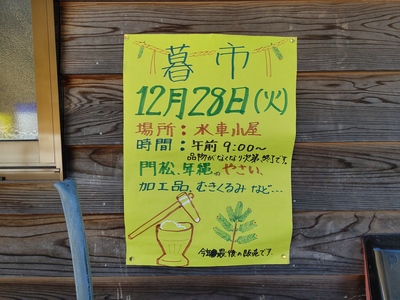 暮市
12月28日(火)
場所:水車小屋
時間:午前9:00〜
品物がなくなり次第、終了です。
門松、年縄、やさい、
加工品、むきくるみ など...
今年最後の販売です。